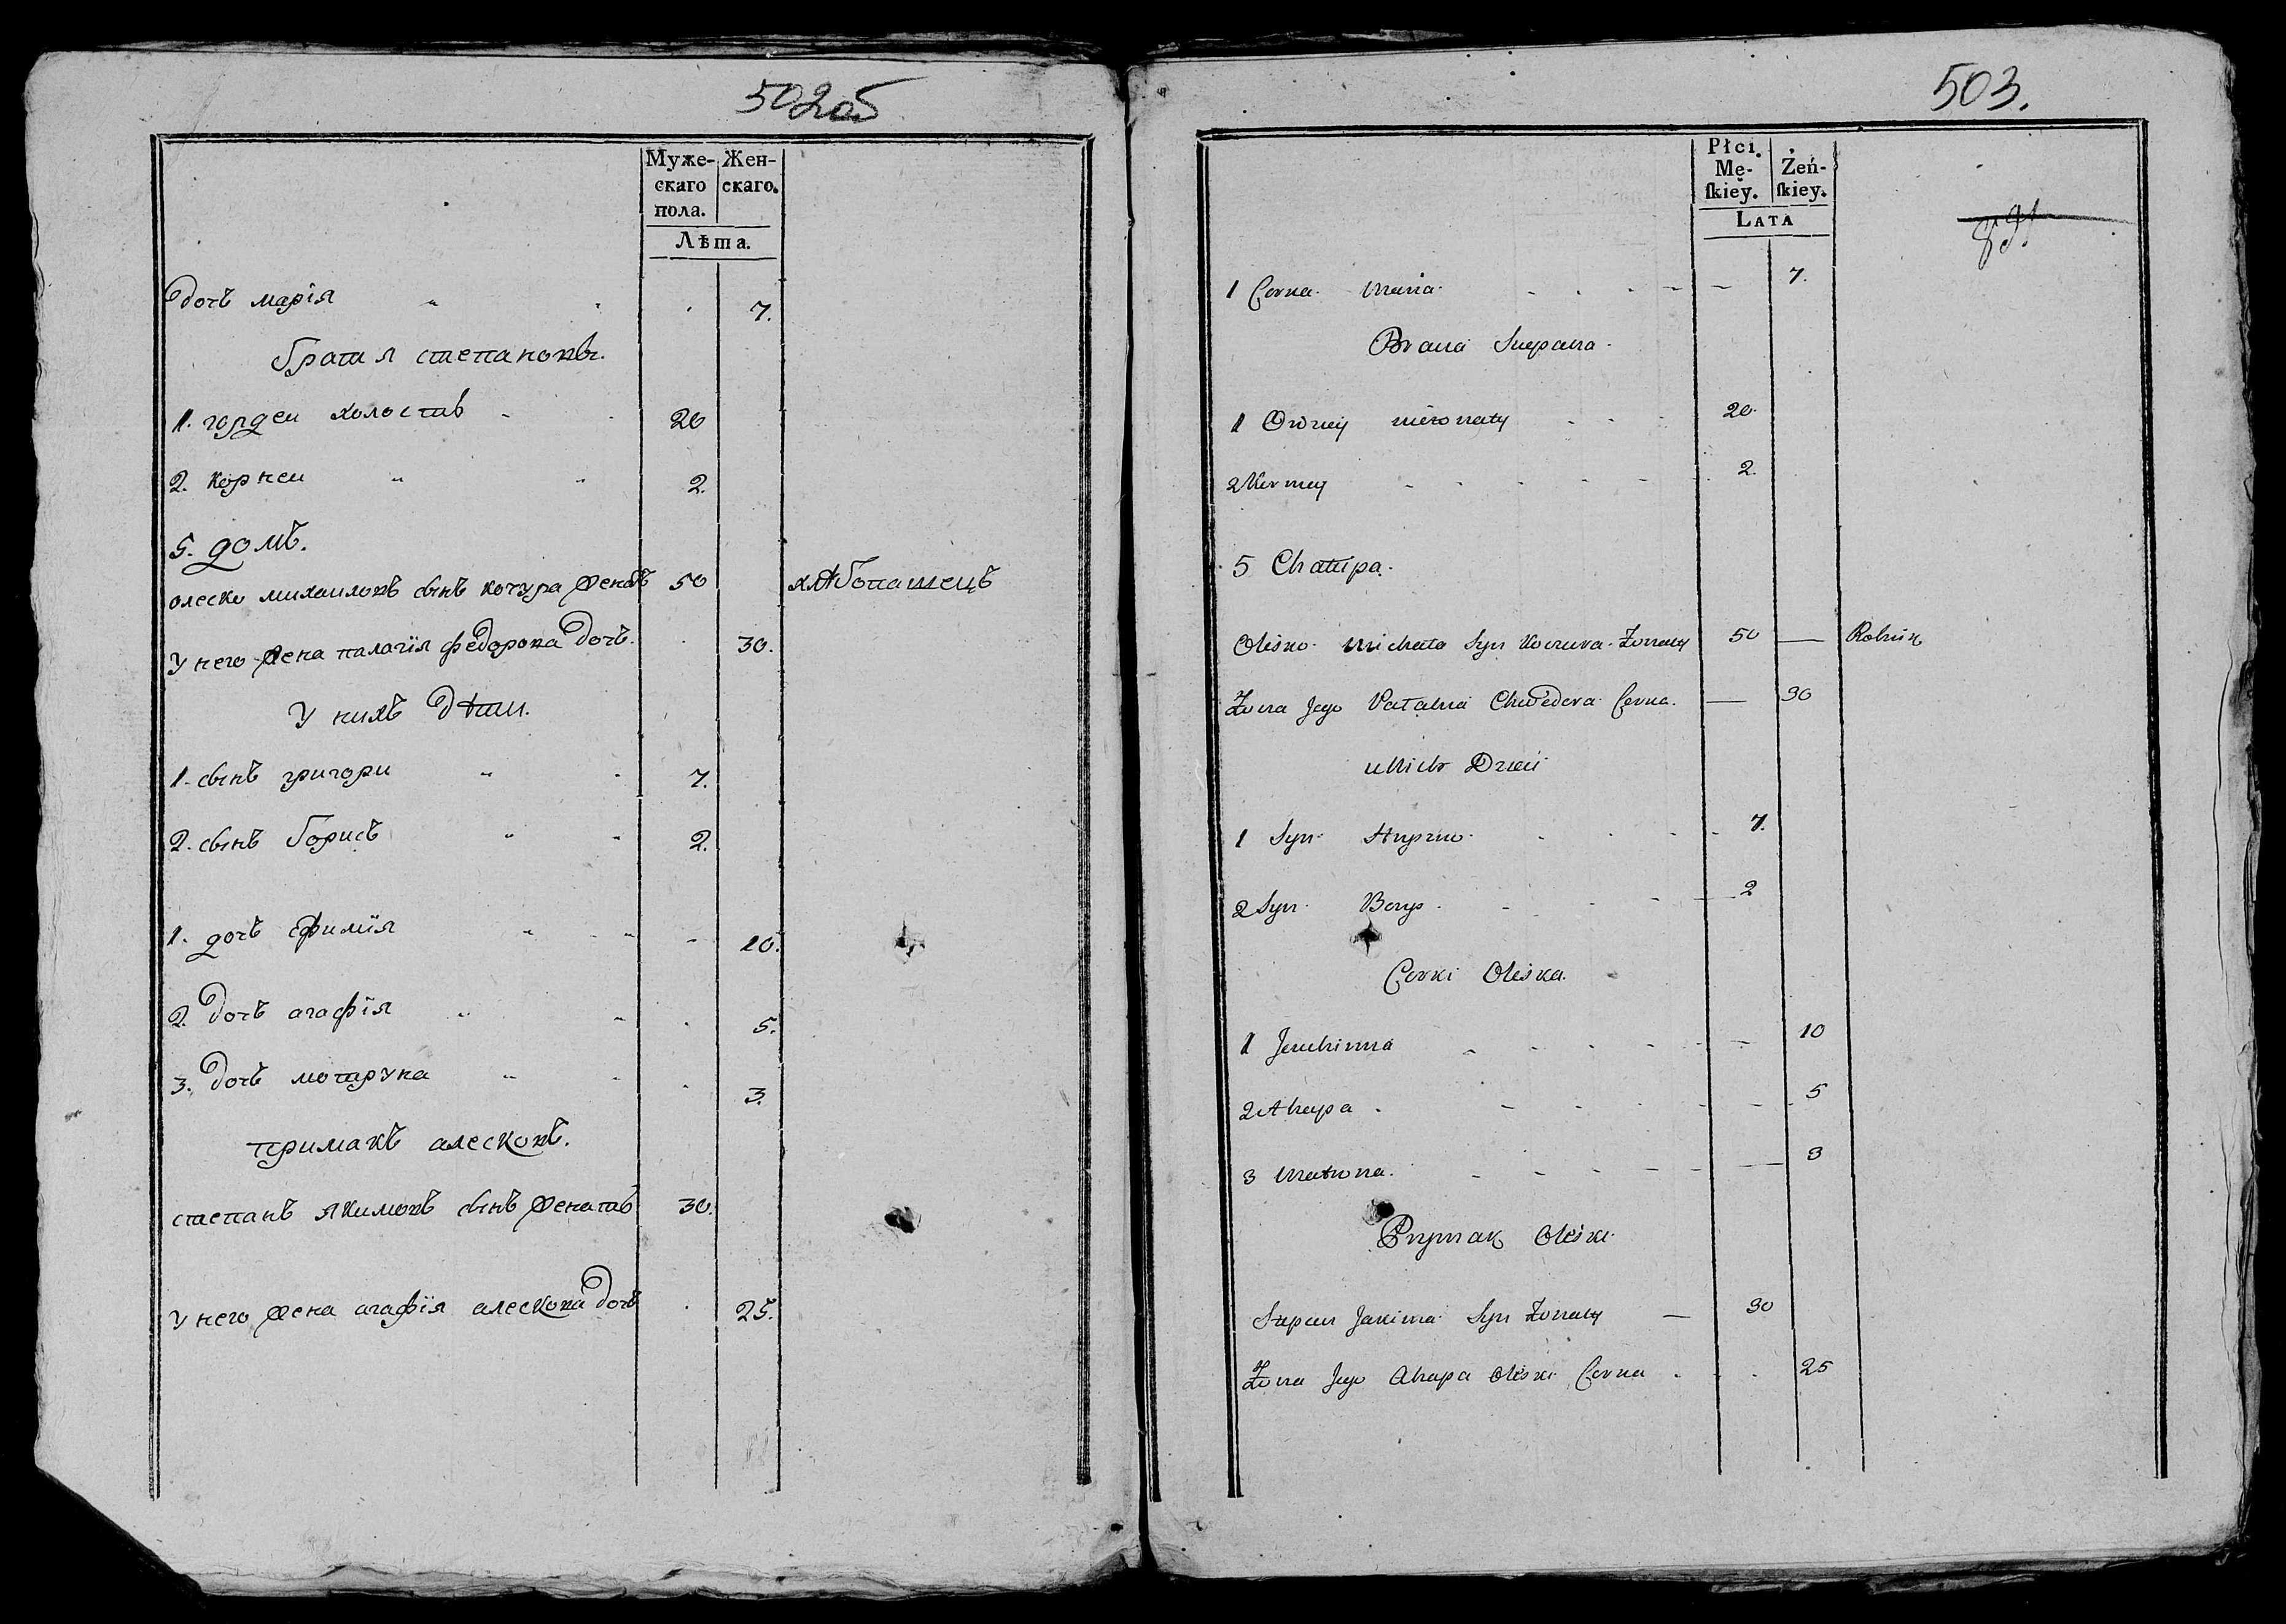 502об
Муже-
скаго
пола.
Жен-
скаго.
Лѣта.
дочъ марія 7.
братя степановы.
1. гордеи холостъ 20
2. корнеи 2.
5. домъ.
олеско михаиловъ сынъ кочура женатъ 50 хлѣбопашецъ
У него жена палагія федорова дочъ. 30.
У нихъ дѣти.
1. сынъ григори 7.
2. сынъ борисъ 2.
1. дочъ ефимія 10.
2. дочъ агафія 5.
3. дочъ мотруна 3.
примакъ алесковъ.
степанъ якимовъ сынъ женатъ 30.
У него жена агафія алескова дочъ 25.
503.
Płci
Mę-
ſkiey.
Żeń-
ſkiey.
Lata
891
1 Corka Maria 7.
Bracia Stepana
1 Ordzey nieżonaty 20
2 Korney 2.
5 Chałupa.
Olesko Michała Syn Koczura Żonaty 50 — Rolnik
Żona Jego Pałahia Chwedora Corka. — 30
u Nich Dzieci
1 Syn Hryhor 7.
2 Syn Borys 2
Corki Oleska.
1 Jeuchimia 10
2 Ahapa 5
3 Matrona. 3
Prymak Oleski
Stepan Jakima Syn Żonaty — 30
Żona Jego Ahapa Oleski Corka 25